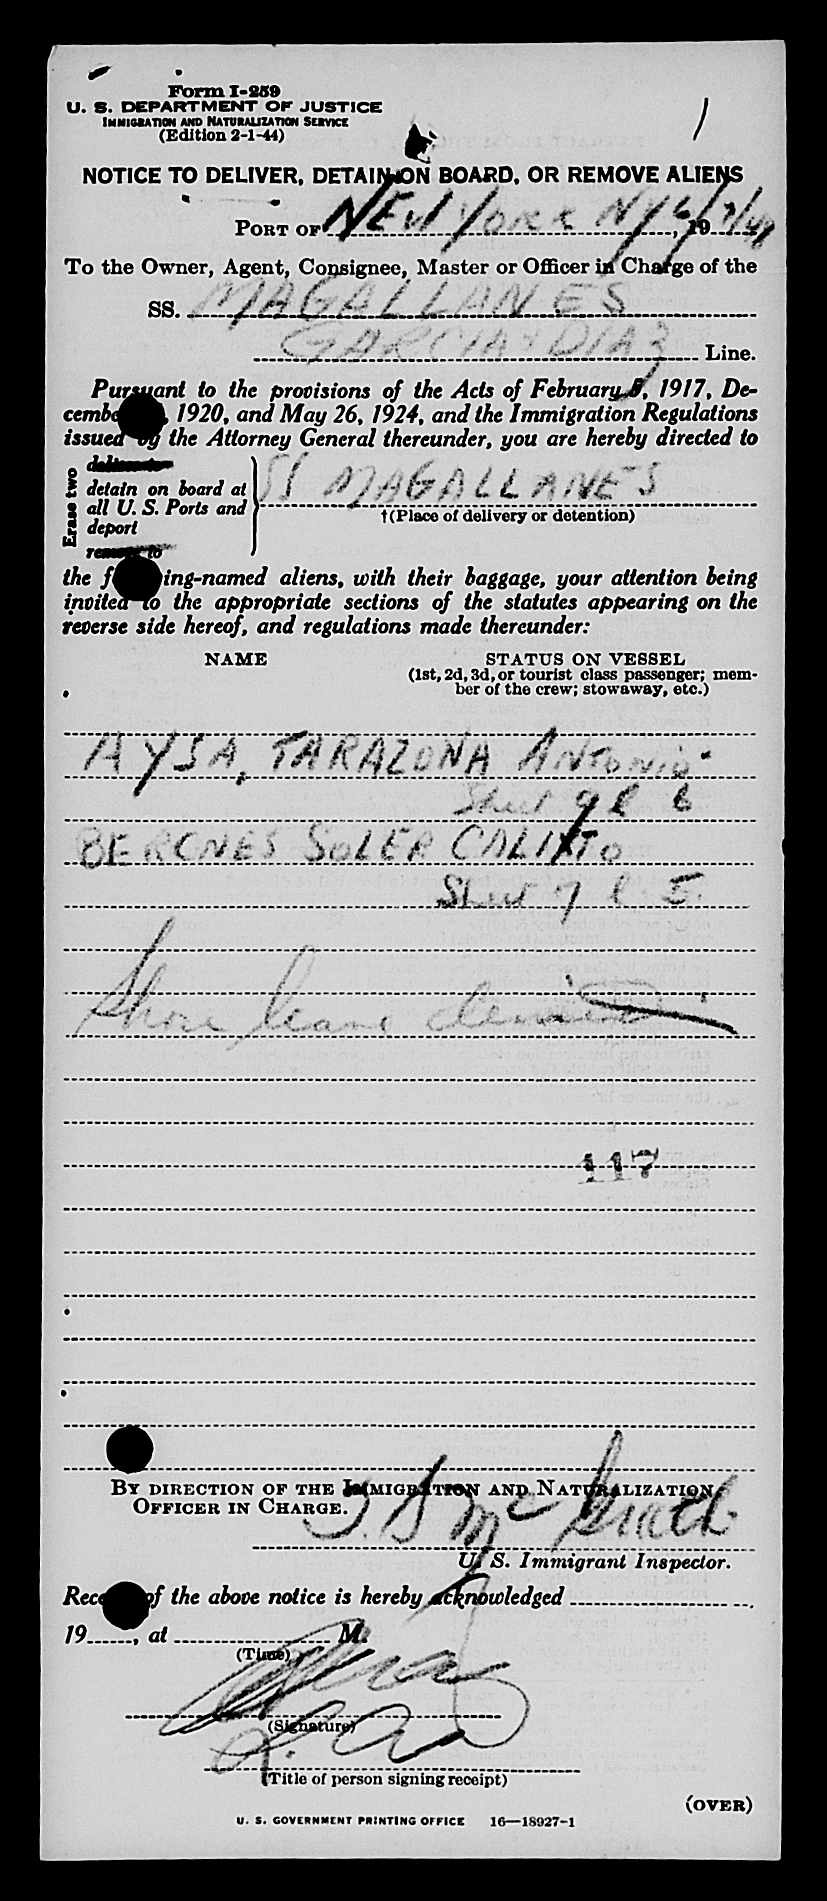 Form I-259
U. S. DEPARTMENT OF JUSTICE
IMMIGRATION AND NATURALIZATION SERVICE
(Edition 2-1-44)
1
NOTICE TO DELIVER, DETAIN ON BOARD, OR REMOVE ALIENS
PORT OF NEW YORK NY 6/7/49, 19
To the Owner, Agent, Consignee, Master or Officer in Charge of the
SS. MAGALLANES
GARCIA & DIAZ Line.
Pursuant to the provisions of the Acts of February 5, 1917, De-
cember , 1920, and May 26, 1924, and the Immigration Regulations
issued by the Attorney General thereunder, you are hereby directed to
Erase two
deliver to
detain on board at
all U. S. Ports and
deport
remove to
SS MAGALLANES
†(Place of delivery or detention)
the f ing-named aliens, with their baggage, your attention being
invited to the appropriate sections of the statutes appearing on the
reverse side hereof, and regulations made thereunder:
NAME STATUS ON VESSEL
(1st, 2d, 3d, or tourist class passenger; mem-
ber of the crew; stowaway, etc.)
AYSA, TARAZONA ANTONIO
Sheet 9 l 6
BERCNES SOLER CALIXTO
Sheet 7 l. 5.
Shore leave denied
117
BY DIRECTION OF THE IMMIGRATION AND NATURALIZATION
OFFICER IN CHARGE.
McGrath
U. S. Immigrant Inspector.
Rece of the above notice is hereby acknowledged
19 , at M.
(Time)
(Signature)
(Title of person signing receipt)
(OVER)
U. S. GOVERNMENT PRINTING OFFICE 16—18927-1